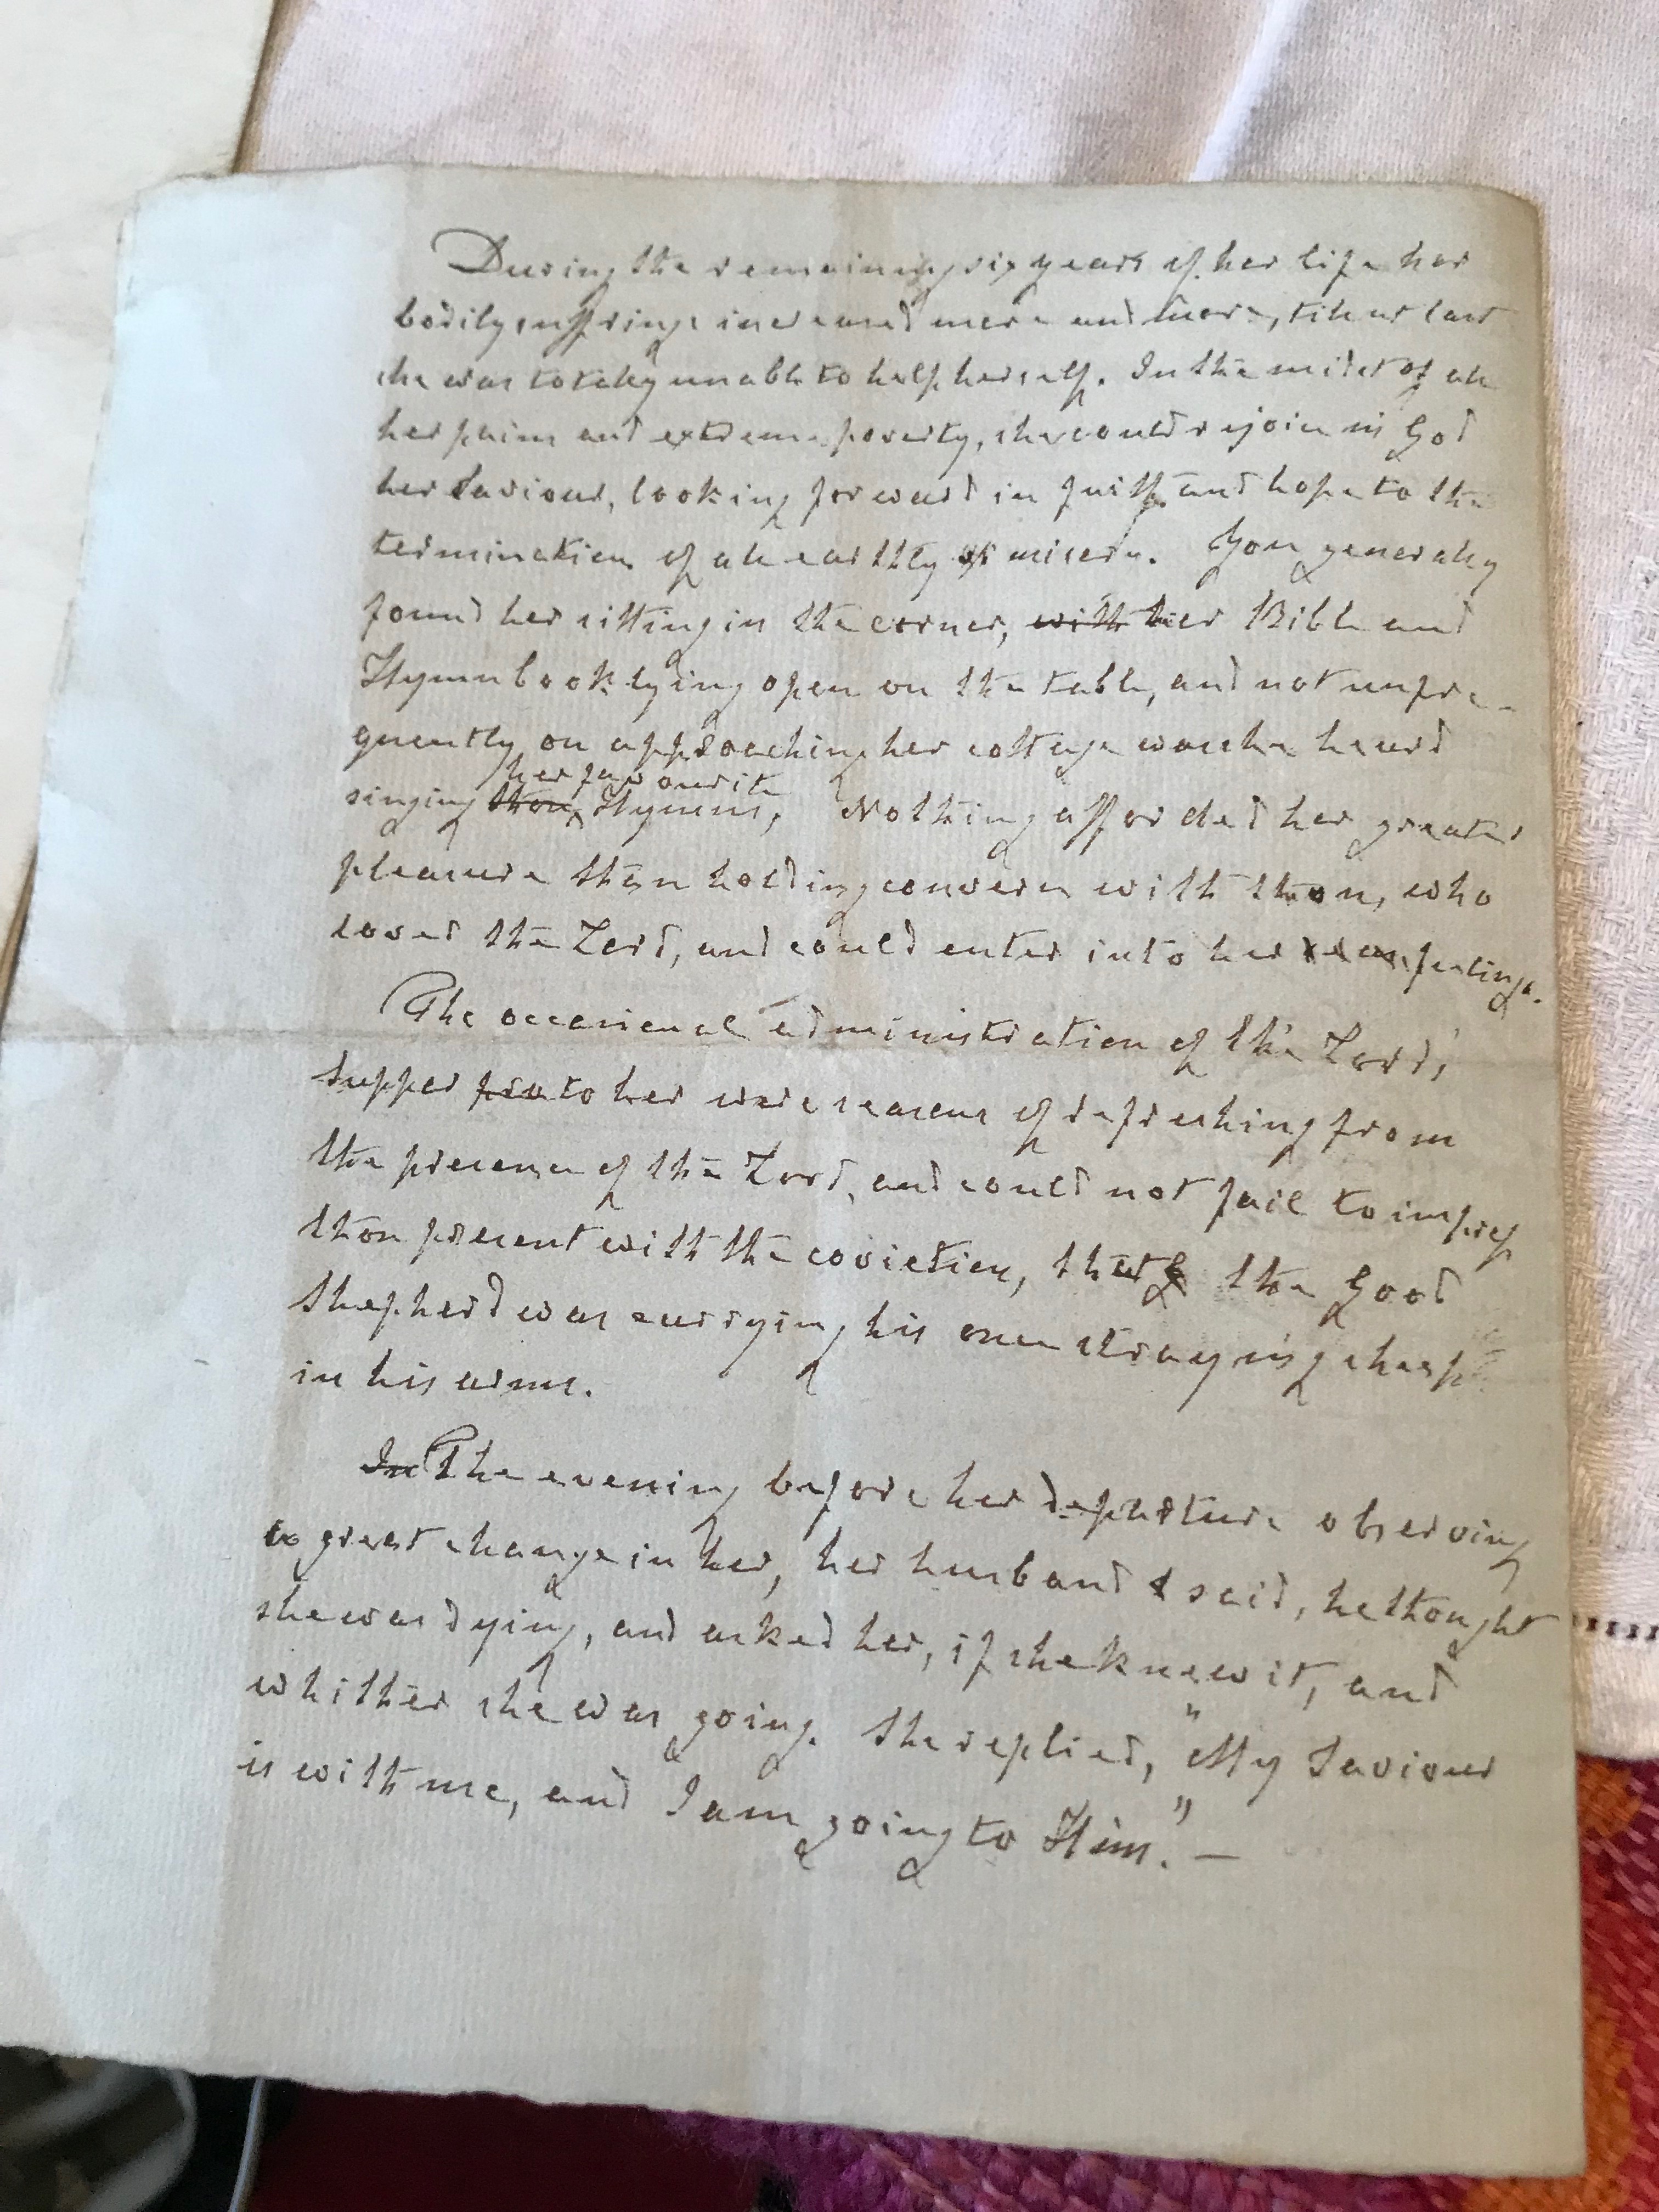 During the remaining six years of her life her
bodily suffrings increased more and more, till at last
she was totally unable to help herself. In the midst of all
her pains and extreme poverty, she could rejoice in God
her Saviour, looking forward in faith and hope to the
termination of all earthly misery. You generally
found her sitting in the corner, with her Bible and
Hymnbook lying open on the table, and not unfre-
quently on approaching her cottage was she heard
her favourite
singing those Hymns, Nothing afforded her greater
pleasure than holding converse with those, who
loved the Lord, and could enter into her feelings.
The occasional administration of the Lord's
supper to her were seasons of refreshing from
the presence of the Lord, and could not fail to impress
those present with the coviction, that the Good
Shepherd was carrying his once straying sheep
in his arms.
In The evening before her departure observing
a great change in her, her husband said, he thought
she was dying, and asked her, if she knew it, and
whither she was going. She replied, "My Saviour
is with me, and I am going to Him." —